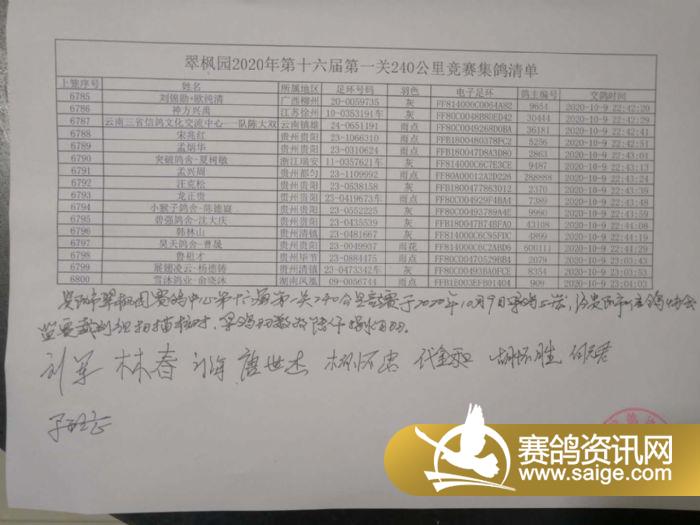 翠枫园2020年第十六届第一关240公里竞赛集鸽清单
上笼序号 姓名 所属地区 足环号码 羽色 电子足环 鸽主编号 交鸽时间
6785 刘锦勋+欧纯清 广西柳州 20-0059735 灰 FF814000C0064A82 9654 2020-10-9 22:42:20
6786 神方兴禹 江苏徐州 10-0353191车 灰 FF80C0048B80ED42 30444 2020-10-9 22:42:29
6787 云南三省信鸽文化交流中心--队陈大双 云南镇雄 24-0651191 雨点 FF80C00049268D0BA 36181 2020-10-9 22:42:41
6788 宋兆红 贵州贵阳 23-1066310 雨点 FF1800480378FC2 5256 2020-10-9 22:42:51
6789 孟炳华 贵州贵阳 23-0310624 雨点 FFB180047D8A3D80 2863 2020-10-9 22:43:01
6790 突破鸽舍-夏柯敏 浙江瑞安 11-0357621车 灰 FF814000C6C7E3CE 9487 2020-10-9 22:43:11
6791 孟兴周 贵州都匀 23-1109992 雨点 FF80A00012A2D226 288888 2020-10-9 22:43:24
6792 汪克松 贵州贵阳 23-0538158 灰 FFB1800477863012 2370 2020-10-9 22:43:39
6793 龙正贵 贵州贵阳 23-0419673车 雨点 FF80C004929F4BA4 7389 2020-10-9 22:43:48
6794 小猴子鸽舍-陈德庭 贵州贵阳 23-0552225 灰 FF80C00493789A4E 9960 2020-10-9 22:43:59
6795 碧强鸽舍-沈大庆 贵州贵阳 23-0435539 灰 FFB180047B74BFA0 43108 2020-10-9 22:44:08
6796 韩林山 贵州清镇 23-0481667 灰 FF814000C6C95FDC 4899 2020-10-9 22:44:19
6797 昊天鸽舍-曹晟 贵州贵阳 23-0049937 雨花 FF814000C6C2ABD6 600111 2020-10-9 22:44:29
6798 鲁祖才 贵州毕节 23-0884475 雨点 FF80C00470529B84 2020-10-9 23:03:41
6799 展翅凌云-杨德铸 贵州清镇 23-0473342车 灰 FF80C00493BA0FCE 8354 2020-10-9 23:03:53
6800 雪沐鸽业-俞晓沐 湖南凤凰 09-0056744 雨点 FFB1E003EFB01404 909 2020-10-9 23:04:03
贵阳市翠枫园赛鸽中心第十六届第一关240公里竞赛于2020年10月
刘军 林春 唐世杰 杨怀忠 胡怀胜
赛鸽资讯网
www.saige.com